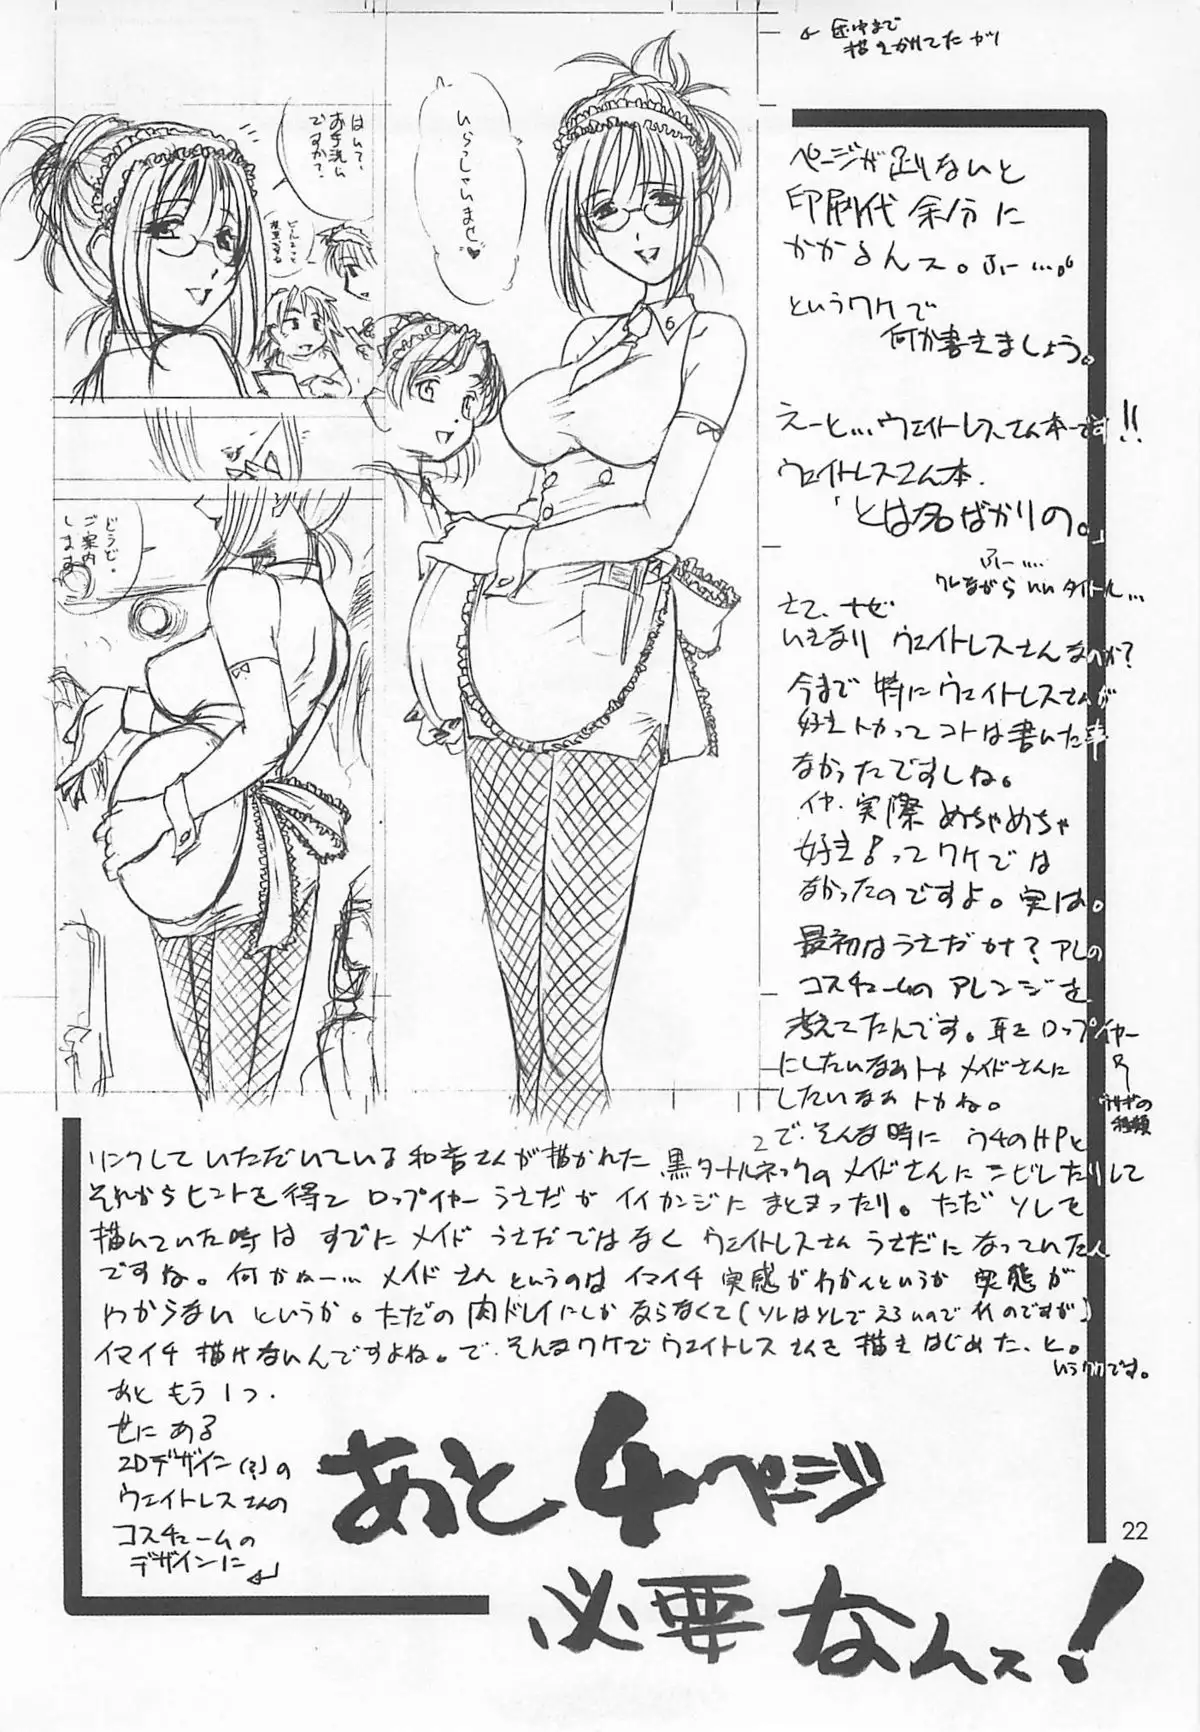 ← 途中まで
描きかけてたが
ページが足りないと
印刷代余分に
かかるんス。ふー…。
というワケで
何か書きましょう。
えーと…ウェイトレスさん本です!!
ウェイトレスさん本.
「とは名ばかりの。」
ふー…..
ワレながらいいタイトル…
さて、なぜ
いきなりウェイトレスさんなのか?
今まで特にウェイトレスさんが
好きトカってコトは書いた事
なかったですしね。
イヤ、実際めちゃめちゃ
好き!ってワケでは
なかったのですよ。実は。
最初はうさだかな?アレの
コスチュームのアレンジを
考えてたんです。耳をロップイヤー
にしたいなぁトカメイドさんに
したいなぁトカね。
ウサギの
種類
で、そんな時にうちのHPと
リンクしていただいている和音さんが描かれた黒タートルネックのメイドさんにシビレたりして
それからヒントを得てロップイヤーうさだがイイカンジにまとまったり。ただソレを
描いていた時はすでにメイドうさだではなくウェイトレスさんうさだになっていたん
ですね。何かねー…メイドさんというのはイマイチ実感がわかんというか実態が
わからないというか。ただの肉ドレイにしかならなくて(ソレはソレでえろいので れのですが)
イマイチ描けないんですよね。で、そんなワケでウェイトレスさんを描きはじめた、と。
いうワケです。
あともう1つ.
世にある
2Dデザイン(?)の
ウェイトレスさんの
コスチュームの
デザインに
はいて、
お手洗い
ですか?
いらっしゃいませ♥
6
どうぞ。
ご案内
します
あと4ページ
必要なんス!
22